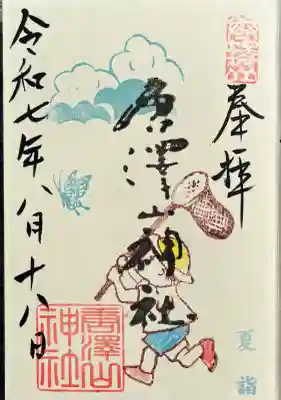 奉拝
唐澤山神社
令和七年八月十八日
唐澤山
神社
夏
詣